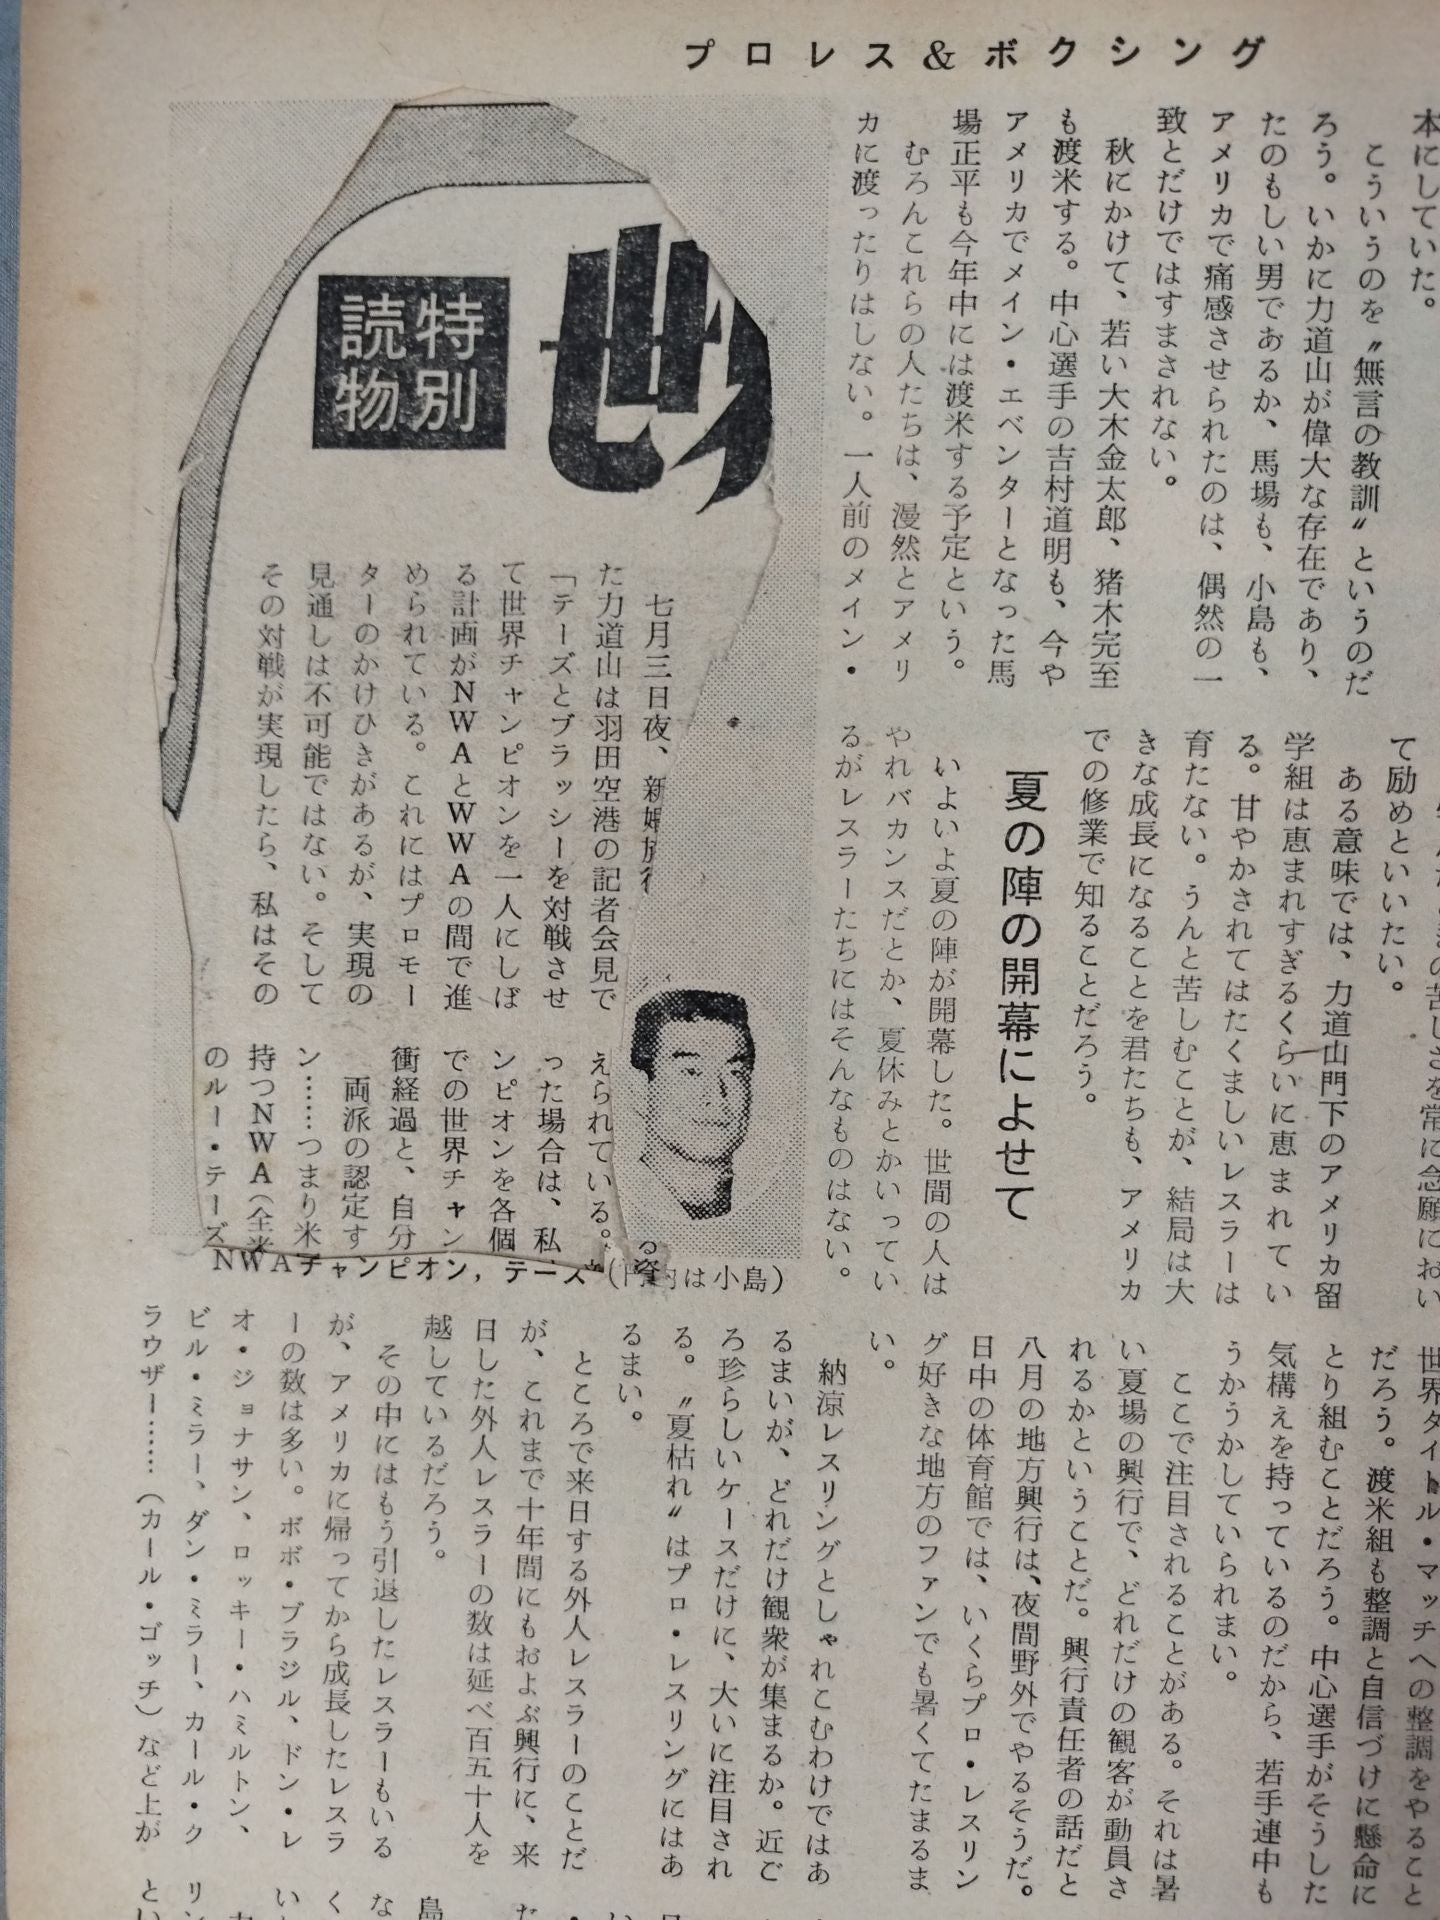 プロレス&ボクシング
本にしていた。
こういうのを〝無言の教訓〟というのだ
ろう。いかに力道山が偉大な存在であり、
たのもしい男であるか、馬場も、小島も、
アメリカで痛感させられたのは、偶然の一
致とだけではすまされない。
秋にかけて、若い大木金太郎、猪木完至
も渡米する。中心選手の吉村道明も、今や
アメリカでメイン・エベンターとなった馬
場正平も今年中には渡米する予定という。
むろんこれらの人たちは、漫然とアメリ
カに渡ったりはしない。一人前のメイン・
特別
読物
七月三日夜、新婚旅行
た力道山は羽田空港の記者会見で
「テーズとブラッシーを対戦させ
て世界チャンピオンを一人にしぼ
る計画がNWAとWWAの間で進
められている。これにはプロモー
ターのかけひきがあるが、実現の
見通しは不可能ではない。そして
その対戦が実現したら、私はその
えられている。
った場合は、私
ンピオンを各個
での世界チャン
衝経過と、自分
両派の認定す
ン……つまり米
持つNWA(全米
のルー・テーズ
NWAチャンピオン,テーズ
は小島)
の苦しさを常に念願におい
て励めといいたい。
ある意味では、力道山門下のアメリカ留
学組は恵まれすぎるくらいに恵まれてい
る。甘やかされてはたくましいレスラーは
育たない。うんと苦しむことが、結局は大
きな成長になることを君たちも、アメリカ
での修業で知ることだろう。
夏の陣の開幕によせて
いよいよ夏の陣が開幕した。世間の人は
やれバカンスだとか、夏休みとかいってい
るがレスラーたちにはそんなものはない。
世界タイトル・マッチへの整調をやること
だろう。渡米組も整調と自信づけに懸命に
とり組むことだろう。中心選手がそうした
気構えを持っているのだから、若手連中も
うかうかしていられまい。
ここで注目されることがある。それは暑
い夏場の興行で、どれだけの観客が動員さ
れるかということだ。興行責任者の話だと
八月の地方興行は、夜間野外でやるそうだ。
日中の体育館では、いくらプロ・レスリン
グ好きな地方のファンでも暑くてたまるま
い。
納涼レスリングとしゃれこむわけではあ
るまいが、どれだけ観衆が集まるか。近ご
ろ珍らしいケースだけに、大いに注目され
る。〝夏枯れ〟はプロ・レスリングにはあ
るまい。
ところで来日する外人レスラーのことだ
が、これまで十年間にもおよぶ興行に、来
日した外人レスラーの数は延べ百五十人を
越しているだろう。
その中にはもう引退したレスラーもいる
が、アメリカに帰ってから成長したレスラ
ーの数は多い。ボボ・ブラジル、ドン・レ
オ・ジョナサン、ロッキー・ハミルトン、
ビル・ミラー、ダン・ミラー、カール・ク
ラウザー……(カール・ゴッチ)など上が